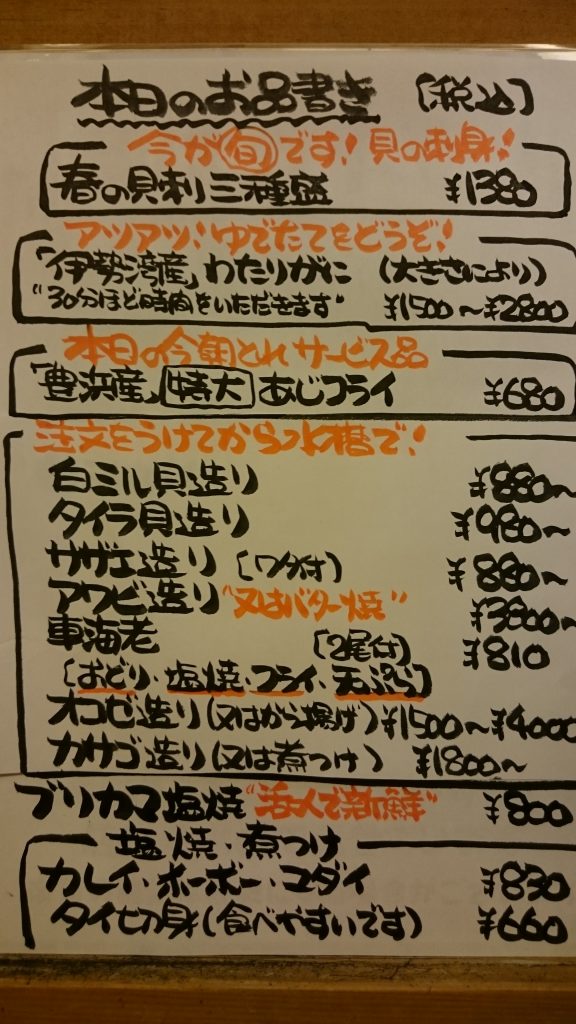 本日のお品書き [税込]
今が旬です! 貝の刺身!
春の貝刺し三種盛 ¥1380
アツアツ!ゆでたてをどうぞ!
「伊勢湾産」わたりがに (大きさにより)
"30分ほど時間をいただきます" ¥1500~¥2800
本日の今朝とれサービス品
「豊浜産」特大 あじフライ ¥680
注文をうけてから水槽で!
白ミル貝造り ¥880~
タイラ貝造り ¥980~
サザエ造り [ワタ付] ¥880~
アワビ造り "又はバター焼" ¥3800~
車海老 [2尾付] ¥810
[おどり・塩焼・フライ・天ぷら]
オコゼ造り(又はから揚げ) ¥1500~¥4000
カサゴ造り(又は煮つけ) ¥1800~
ブリカマ塩焼 "活〆で新鮮" ¥800
塩焼・煮つけ
カレイ・ホーボー・ユダイ ¥830
タイ切り身(食べやすいです) ¥660